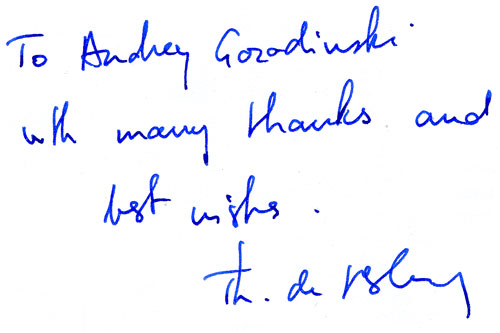 To Andrey Gorodinski
with many thanks and
best wishes.
Th. de